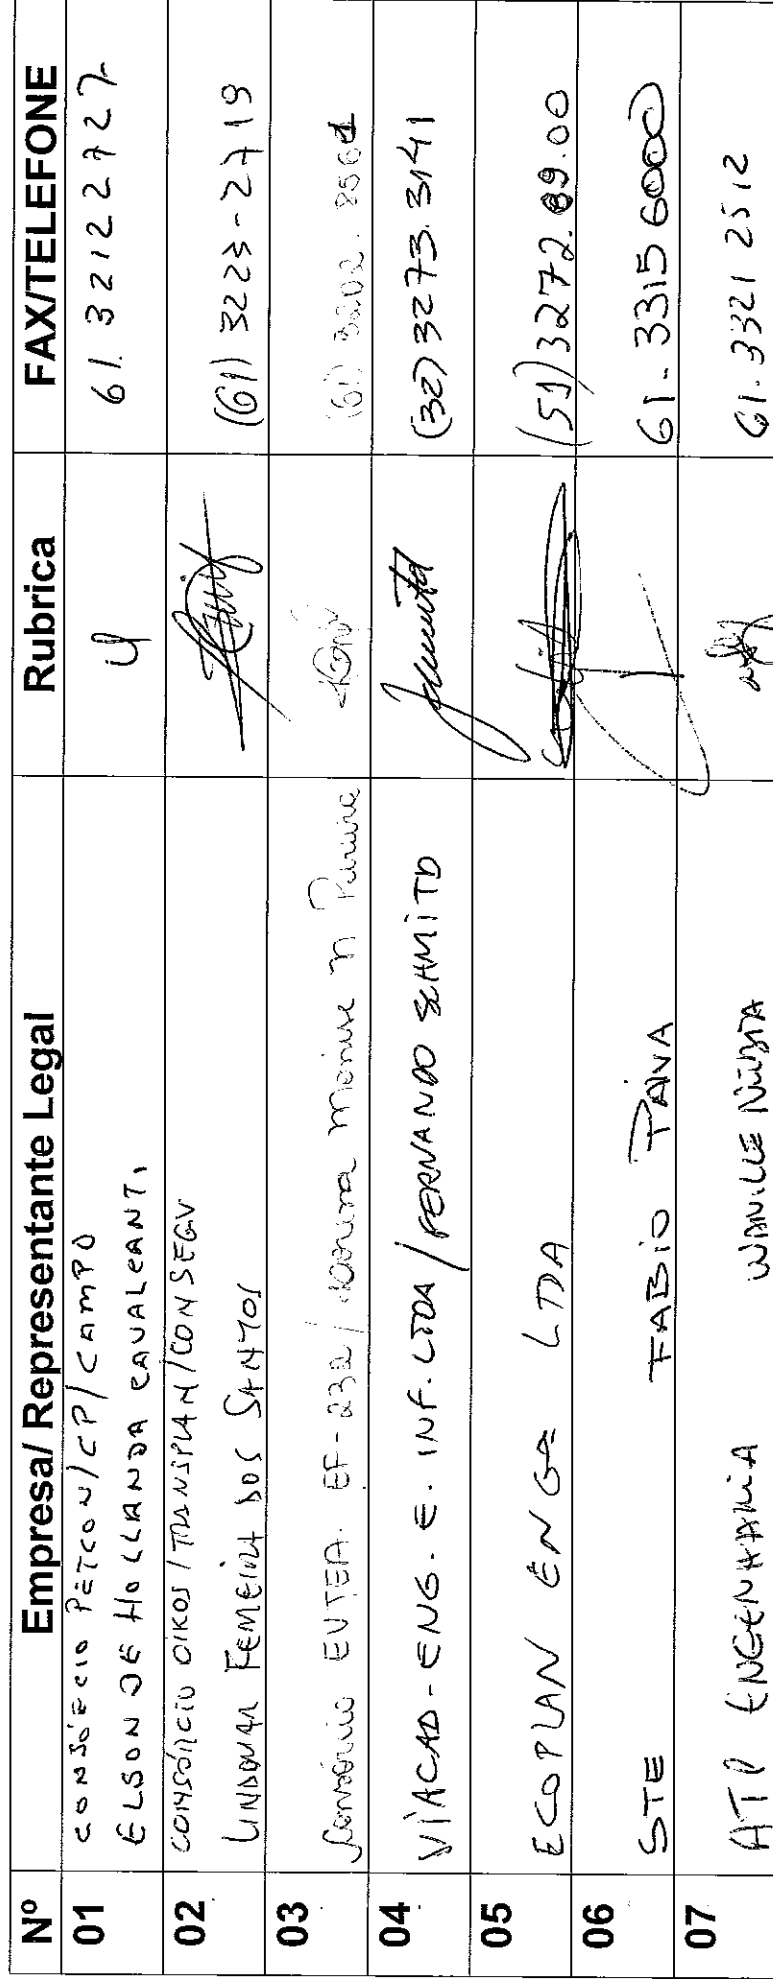 Nº Empresa/ Representante Legal Rubrica FAX/TELEFONE
01 CONSÓRCIO PETCON/CP/CAMPO
ELSON DE HOLLANDA CAVALCANTI 61.32122727
02 CONSÓRCIO OIKOS/TRANSPLAN/CONSEGV
LINDOMAR FERREIRA DOS SANTOS (61) 3223-2719
03 Consórcio EVTEA. EF-232/ Monise N Pereira (61) 3202.
04 VIACAD-ENG. E. INF. LTDA/FERNANDO SCHMITD (32) 3273.3141
05 ECOPLAN ENGª LTDA (51) 3272.89.00
06 STE FABIO PAIVA 61-3315 6000
07 ATP ENGENHARIA 61.3321 2512